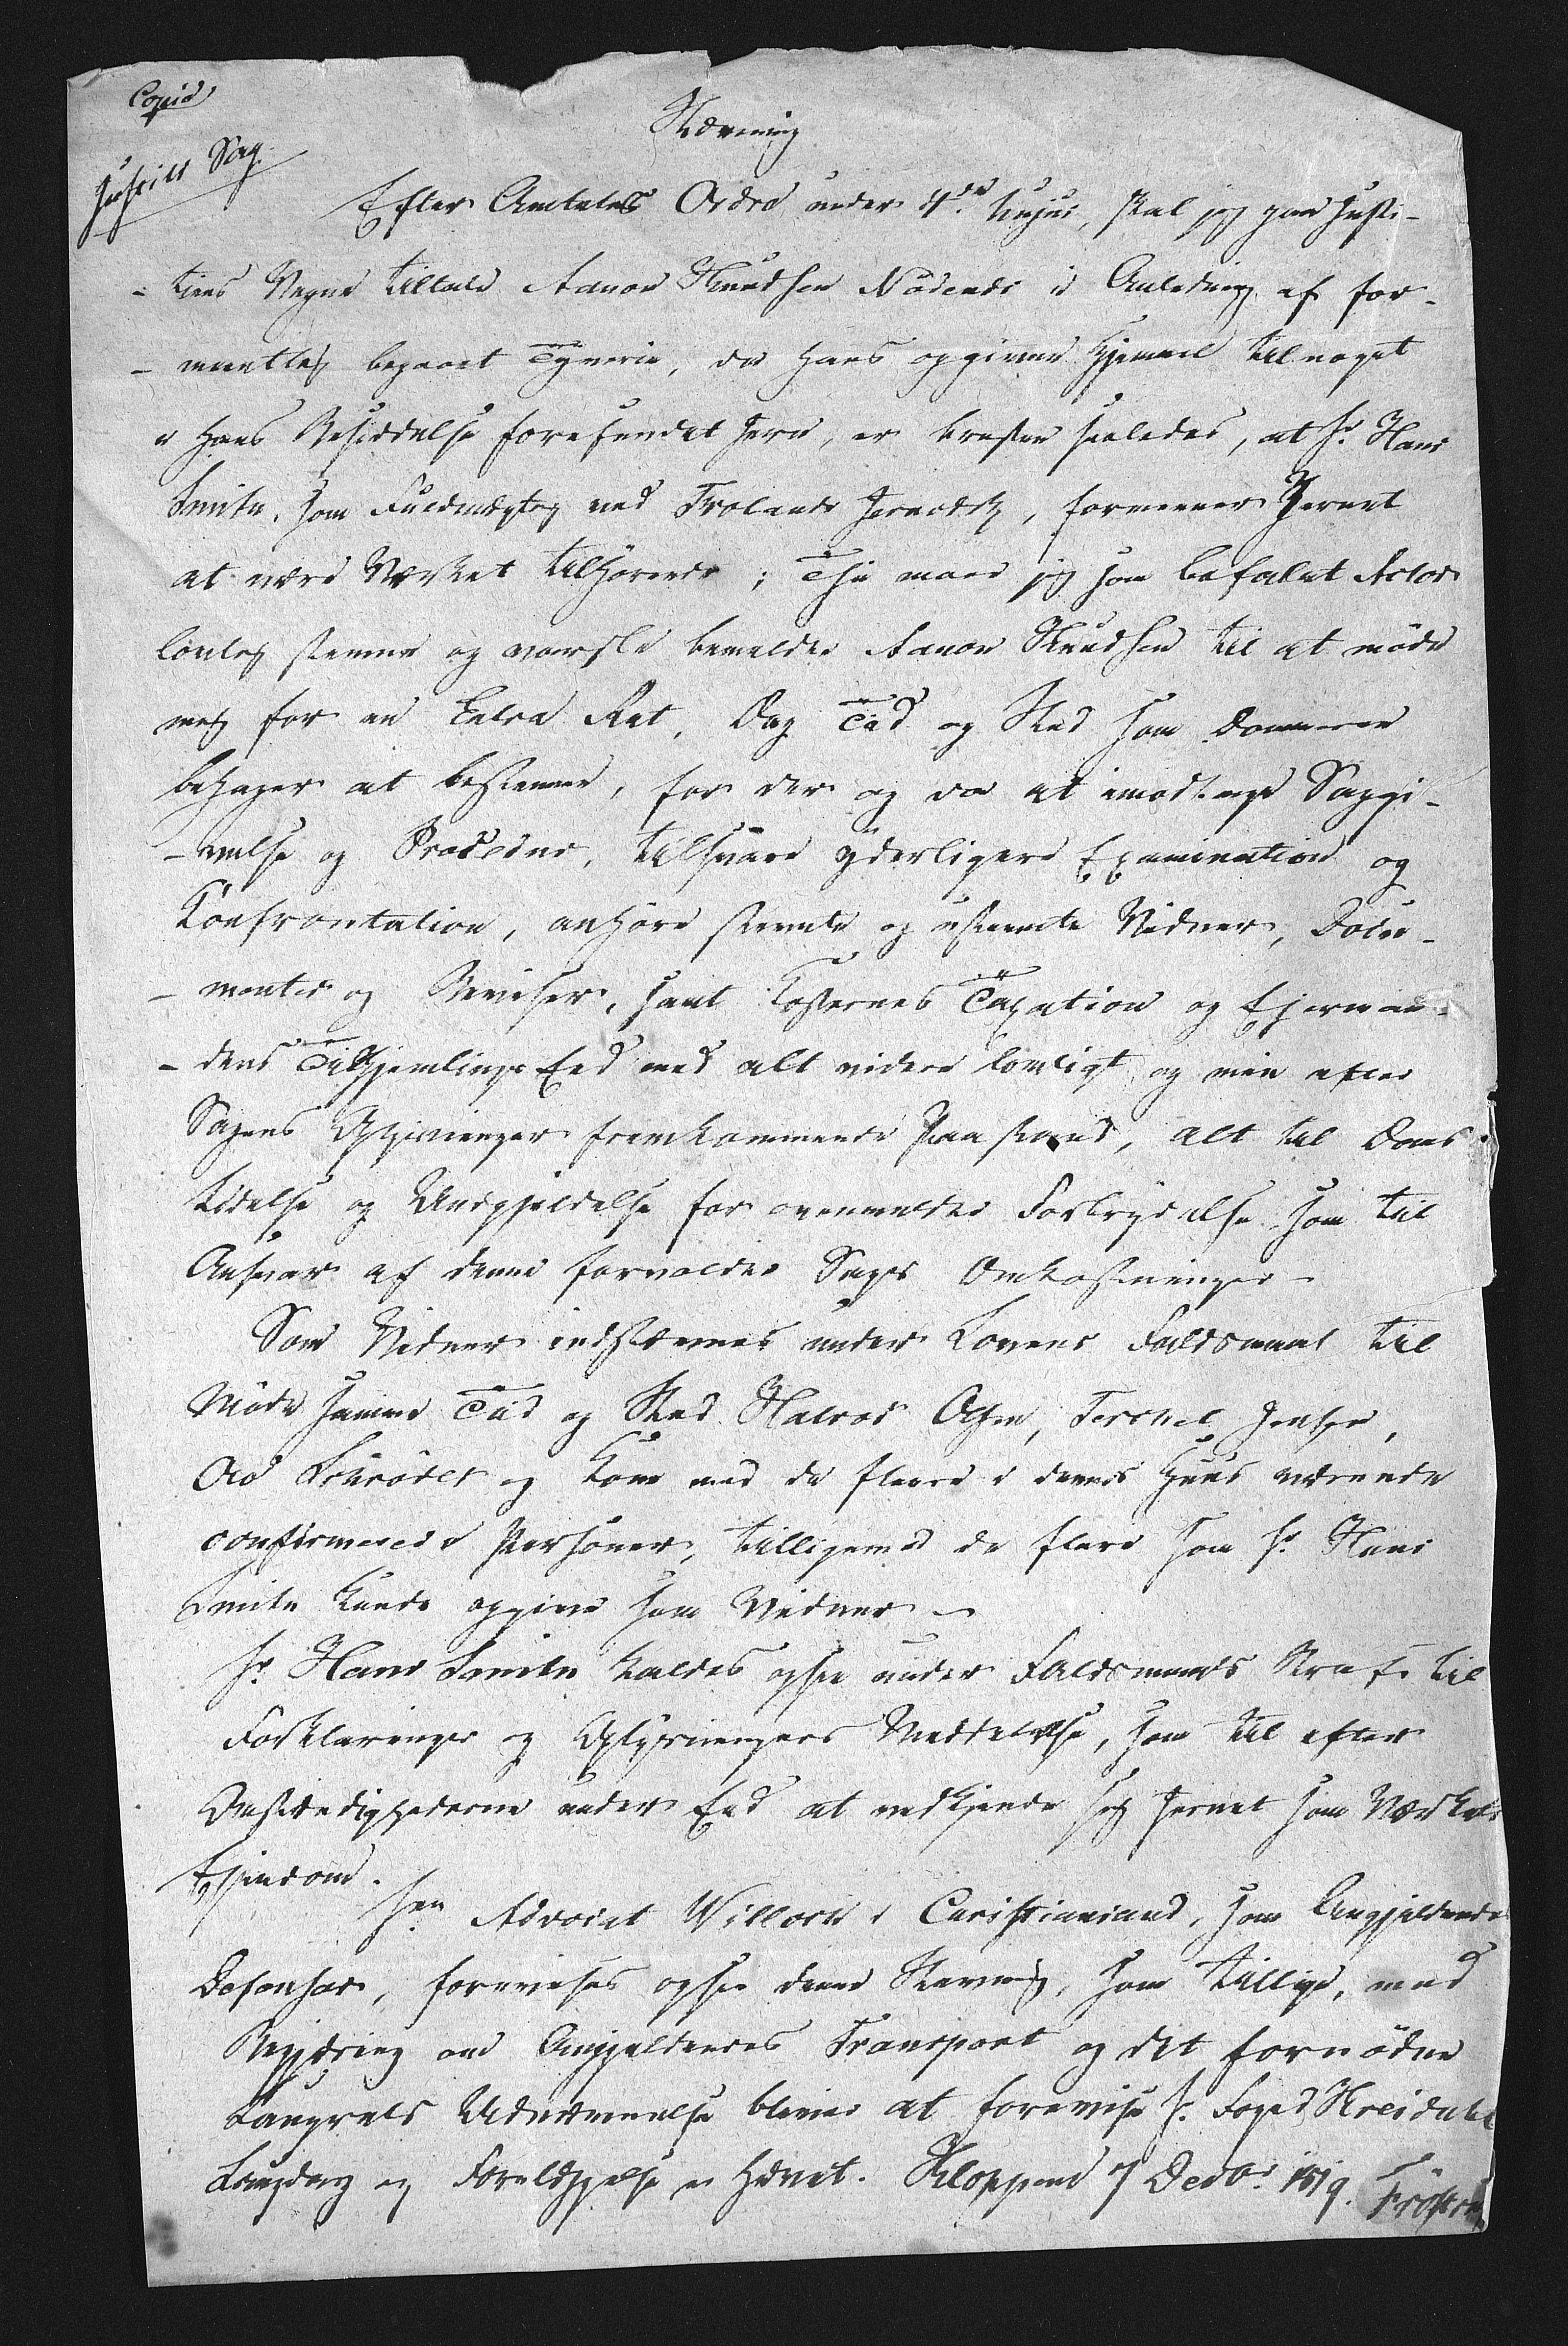 Copie
Justits Sag.
Stævning
Efter Amtets Ordre under 4de hujus, skal jeg paa Justi-
-tiens Vegne tiltale Aanon Knudsen Nødenes i Anledning af for-
-mentlig begaaet Tyverie, da hans opgivne Hjemmel til noget
i hans Besiddelse forefundet Jern, er brusten saaledes, at Hr. Hans
Smith, som Fuldmægtig ved Frolands Jernværk, formeener Jernet
at være Værket tilhørende; Thi maae jeg som befalet Actor
lovlig stevne og varsle bemeldte Aanon Knudsen til at møde
mig for en Extra Ret, Dag Tiid og Sted som Dommeren
behager at bestemme, for der og da at imodtage Saggi-
-velse og Procedure, tilsvare yderligere Examination og
Confrontation, anhøre stevnte og ustevnte Vidner, Docu-
-menter og Beviser, samt Kosternes Taxation og Ejerman-
-dens Tilhjemlings Eed med alt videre lovligt, og min efter
Sagens Oplysninger fremkommende Paastand, alt til Doms
Lidelse og Undgjeldelse for ovenmeldte Forbrydelse som til
Ansvar af denne forvoldte Sags Omkostninger.
Som Vidner indstævnes under Lovens Faldsmaal til
Møde samme Tiid og Sted Halvor Olsen, Terchel Jensen,
Ole Schrøder og Kone med de fleere i dennes Huus værende
confirmerede Personer, tilligemed de flere som Hr. Hans
Smith kunde opgive som Vidner.
Hr. Hans Smith kaldes ogsaa under Faldsmaals Straf til
Forklarings og Oplysningers Meddelelse, som til efter
Omstændighederne under Eed at vedkjende sig Jernet som Værkets
Ejendom.
Herr Advocat Willoch i Christiansand, som Angjeldendes
Defensor, forevises ogsaa denne Stævning, som tillige, med
Begjæring om Angjeldendes Transport og det fornødne
Laugrets Udnævnelse bliver at forevise Hr. Foged Hreidahl
Løngdag og Forelæggelse er hævet. Kloppene 7 Decbr. 1819.